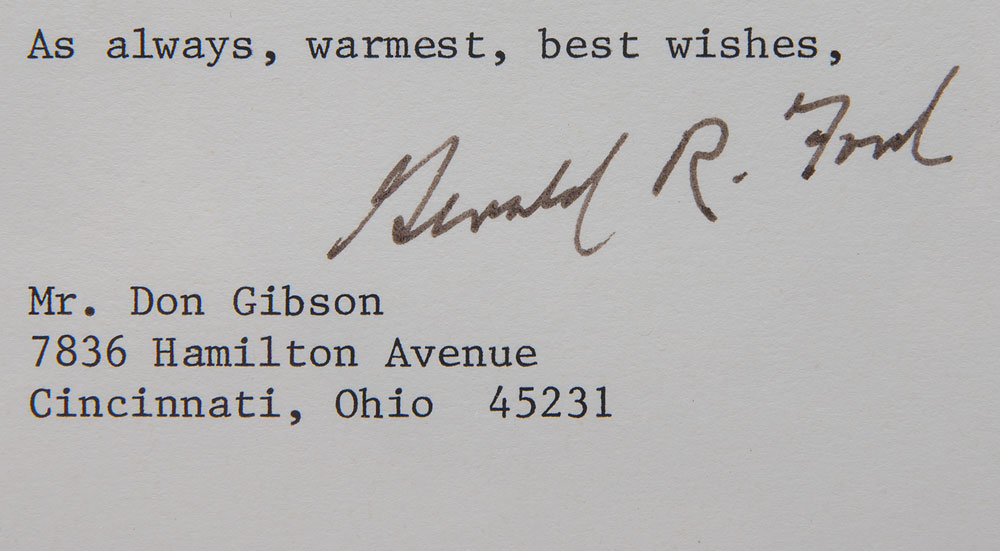 As always, warmest, best wishes,
Gerald R. Ford
Mr. Don Gibson
7836 Hamilton Avenue
Cincinnati, Ohio  45231